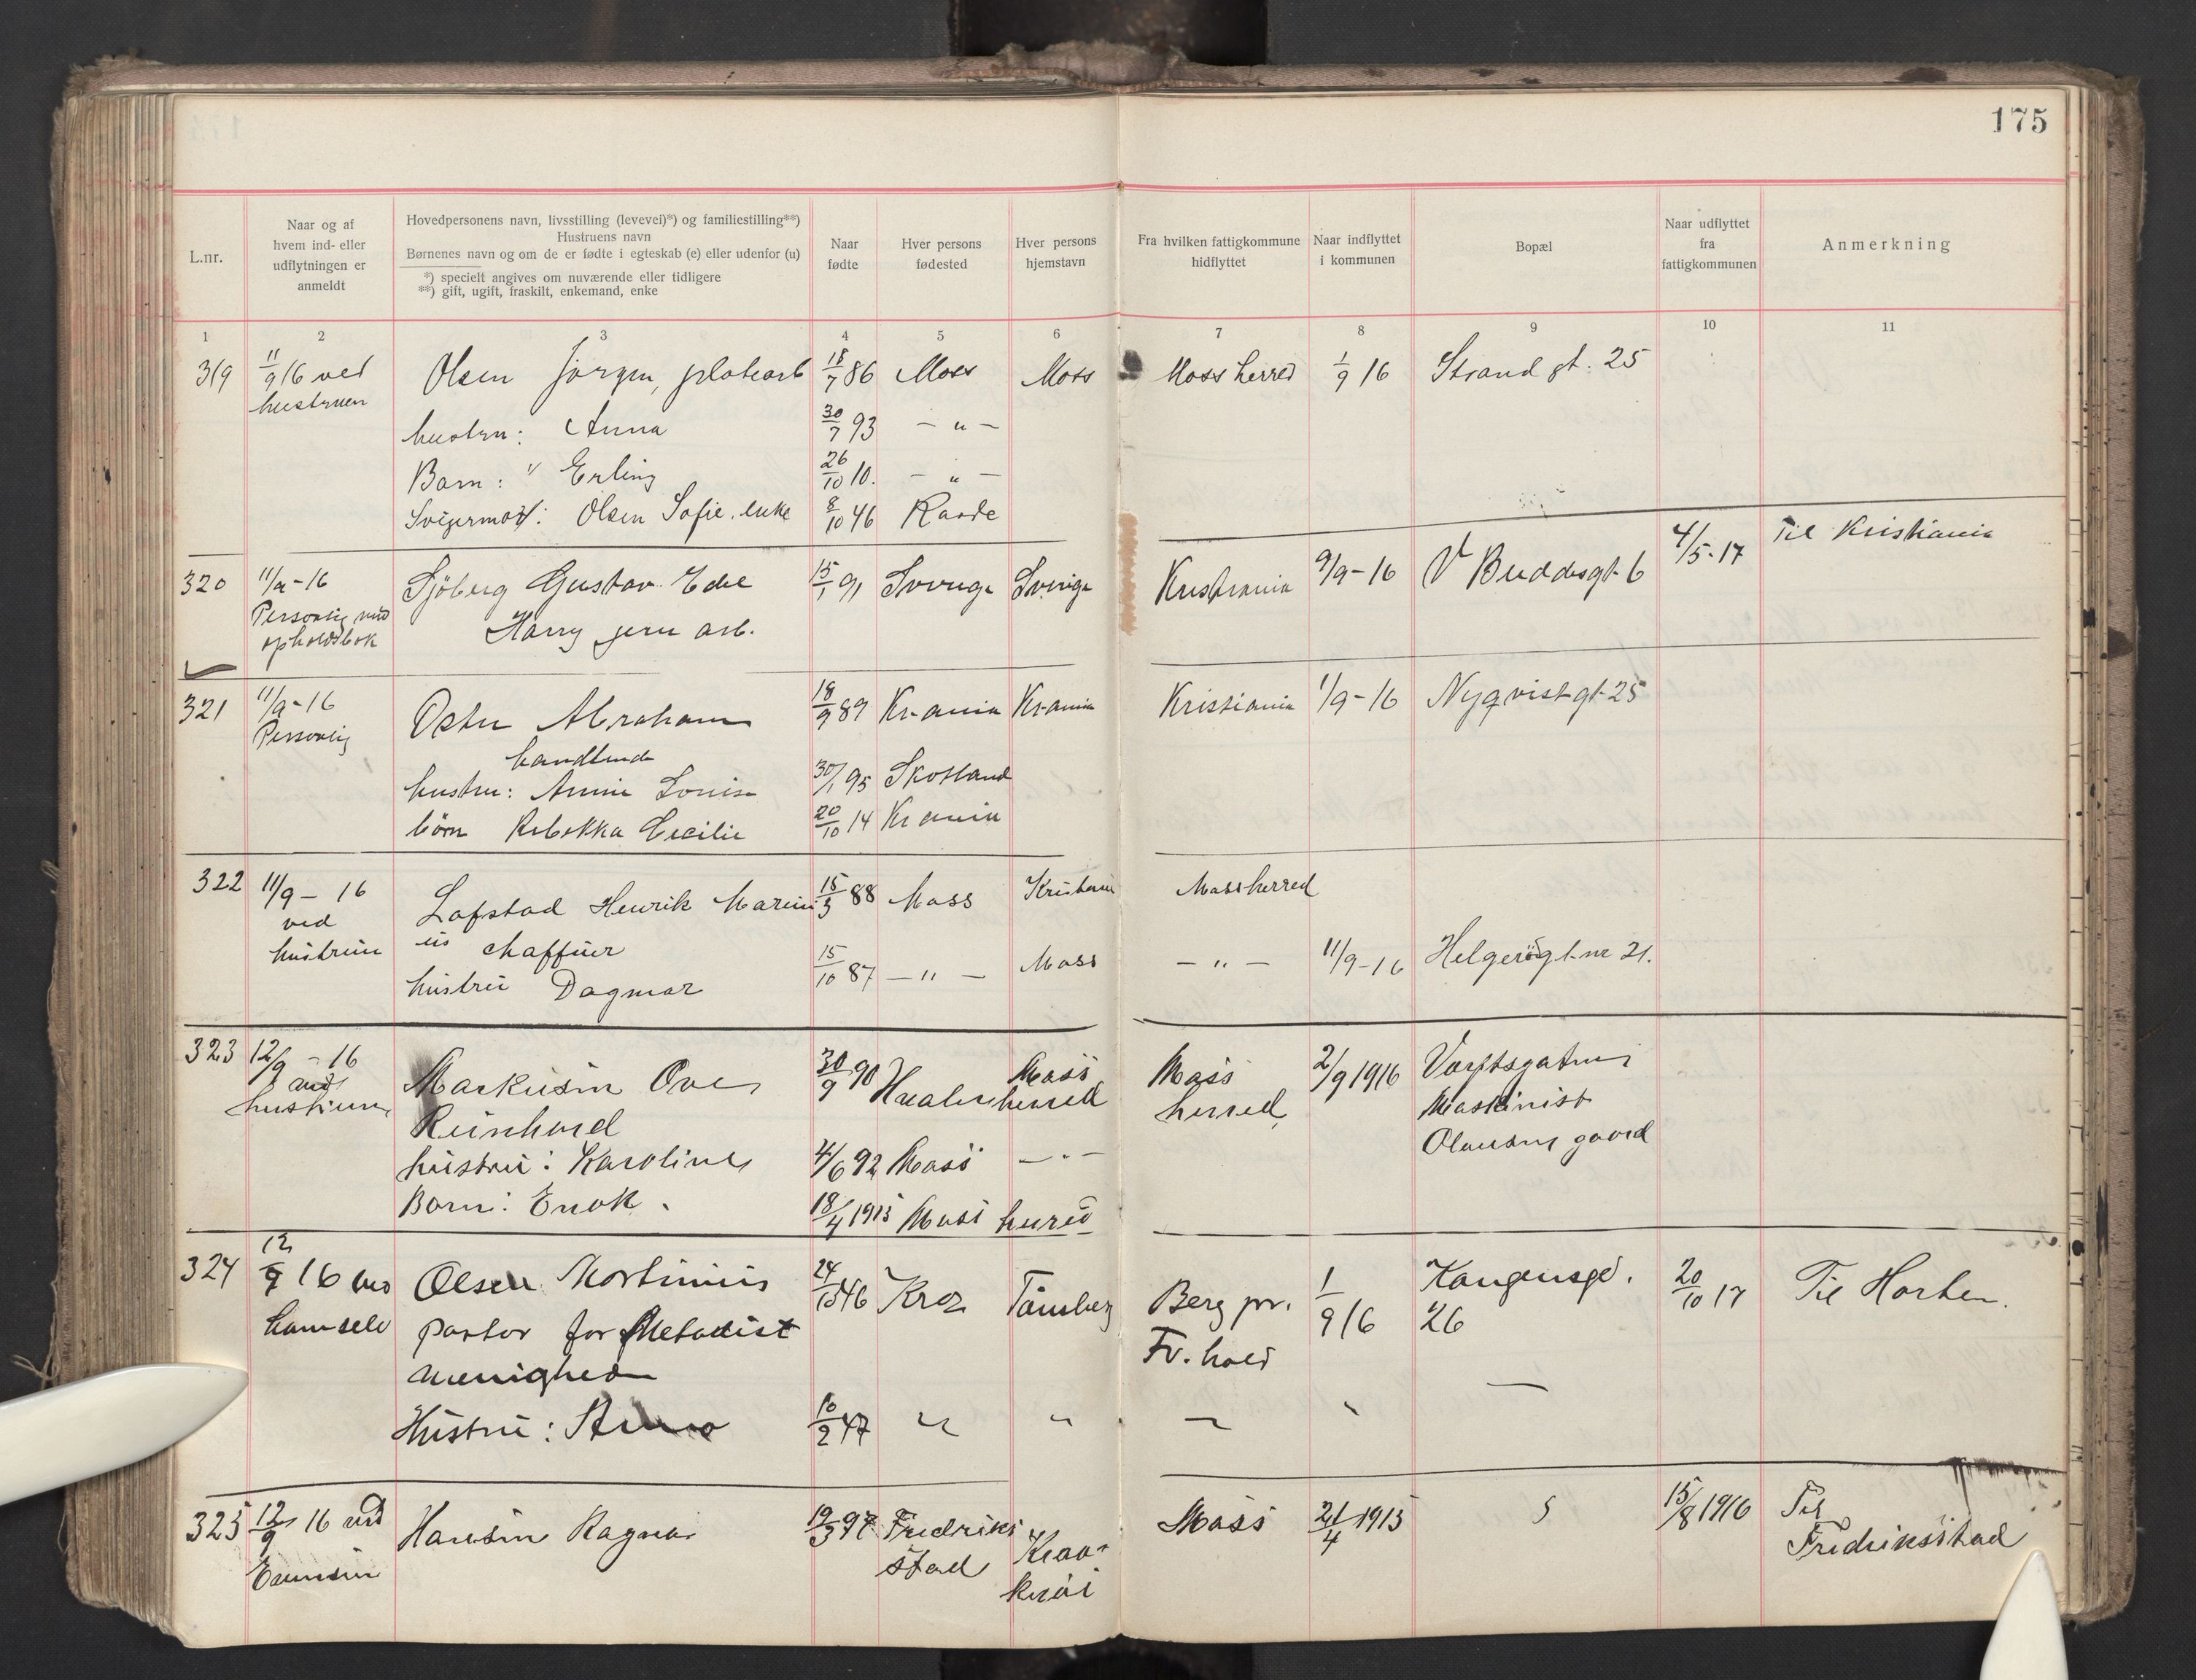 175
L.nr.
Naar og af
hvem ind- eller
udflytningen er
anmeldt
Hovedpersonens navn, livsstilling (levevei)*) og familiestilling**)
Hustruens navn
Børnenes navn og om de er fødte i egteskab (e) eller udenfor (u)
*) specielt angives om nuværende eller tidligere
**) gift, ugift, fraskilt, enkemand, enke
Naar
fødte
Hver persons
fødested
Hver persons
hjemstavn
Fra hvilken fattigkommune
hidflyttet
Naar indflyttet
i kommunen
Bopæl
Naar udflyttet
fra
fattigkommunen
Anmerkning
1 2 3 4 5 6 7 8 9 10 11
319 11/9 16 ved Olsen Jörgen, 18/7 86 Moss Moss Moss herred 1/9 16 Strand gt. 25
hustruen
hustru: Anna 30/7 93 – " –
Barn: " Erling 26/10 10. – " –
Svigermor: Olsen Sofie. enke 8/10 46 Raade
320 11/9-16 Sjöberg Gustav 15/1 91 Sverige Sverige Kristiania 9/9-16 V Buddesgt. 6 4/5-17 Til Kristiania
Personlig med Harry jern arb.
opholdsbok
321 11/9-16 Abraham 18/9 89 Kr-ania Kr-ania Kristiania 1/9-16 Nyqvistgt 25
Personlig handlende
hustru: Annie Louise 30/1 95 Skotland
börn Rebekka Cecilie 20/10 14 Kr ania
322 11/9 – 16 Lofstad Henrik Marin 15/3 88 Moss Kristiania Moss herred
ved ius chaffüer
hüstruen
hüstrü Dagmar 15/10 87 – " – Moss – " – 11/9-16 Helgerödgt. nr 21.
323 12/9 – 16 Markusen Ove 30/9 90 Hvaler Moss herred Moss herred 2/9 1916 Værftsgaten
hustruen Reinhard Maskinist
hüstrü: Karoline 4/6 92 Moss – " – Olausens gaard
Barn: Enok. 18/4 1915 Moss herred
324 12/9 16 ved Olsen Mortinius 24/10 46 Tönsberg Berg pr. 1/9 16 Kongensgd. 20/10 17 Til Horten.
ham selv pastor for Metodist Fr. hald 26
menighed
Hüstrü: 10/2 47 " " " " —
325 12/9 16 ved Hansen Ragnar 19/3 97 Fredriks Moss 21/4 1915 15/8 1916 Til
stad Fredriksstad